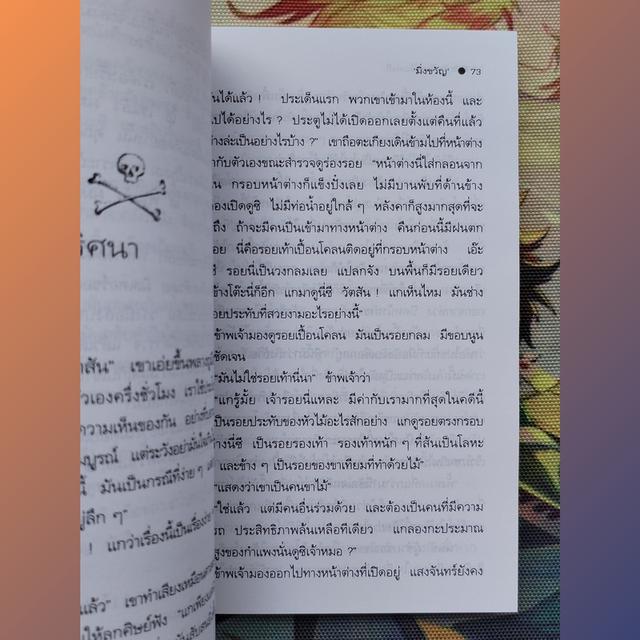 ริศนา
าสัน" เขาเอ่ยขึ้นพลาง
ัวเองครึ่งชั่วโมง เราใช้
ความเห็นของกัน อย่า
มบูรณ์ แต่ระวังอย่ามั่นใจ
้ มันเป็นกรณีที่ง่าย ๆ
ยู่ลึก ๆ"
! แกว่าเรื่องนี้เป็นเรื่อง
แล้ว" เขาทำเสียงเหมือน
ให้ลูกศิษย์ฟัง
'มิ่งขวัญ' ● 73
นได้แล้ว ! ประเด็นแรก พวกเขาเข้ามาในห้องนี้ และ
ไปได้อย่างไร ? ประตูไม่ได้เปิดออกเลยตั้งแต่คืนที่แล้ว
่างล่ะเป็นอย่างไรบ้าง ?" เขาถือตะเกียงเดินข้ามไปที่หน้าต่าง
ำกับตัวเองขณะสำรวจดูร่องรอย "หน้าต่างนี้ใส่กลอนจาก
น กรอบหน้าต่างก็แข็งปั๋งเลย ไม่มีบานพับที่ด้านข้าง
องเปิดดูซิ ไม่มีท่อน้ำอยู่ใกล้ ๆ หลังคาก็สูงมากสุดที่จะ
ถึง ถ้าจะมีคนปีนเข้ามาทางหน้าต่าง คืนก่อนนี้มีฝนตก
อย นี่คือรอยเท้าเปื้อนโคลนติดอยู่ที่กรอบหน้าต่าง เอ๊ะ
ซี รอยนี่เป็นวงกลมเลย แปลกจัง บนพื้นก็มีรอยเดียว
ข้างโต๊ะนี่ก็อีก แกมาดูนี่ซี วัตสัน ! แกเห็นไหม มันช่าง
อยประทับที่สวยงามอะไรอย่างนี้"
ข้าพเจ้ามองดูรอยเปื้อนโคลน มันเป็นรอยกลม มีขอบนูน
ชัดเจน
"มันไม่ใช่รอยเท้านี่นา" ข้าพเจ้าว่า
"แกรู้มั้ย เจ้ารอยนี่แหละ มีค่ากับเรามากที่สุดในคดีนี้
เป็นรอยประทับของหัวไม้อะไรสักอย่าง แกดูรอยตรงกรอบ
างนี่ซี เป็นรอยรองเท้า รองเท้าหนัก ๆ ที่ส้นเป็นโลหะ
และข้าง ๆ เป็นรอยของขาเทียมที่ทำด้วยไม้"
"แสดงว่าเขาเป็นคนขาไม้"
"ใช่แล้ว แต่มีคนอื่นร่วมด้วย และต้องเป็นคนที่มีความ
รถ ประสิทธิภาพล้นเหลือทีเดียว แกลองกะประมาณ
สูงของกำแพงนั่นดูซิเจ้าหมอ ?"
ข้าพเจ้ามองออกไปทางหน้าต่างที่เปิดอยู่ แสงจันทร์ยังคง